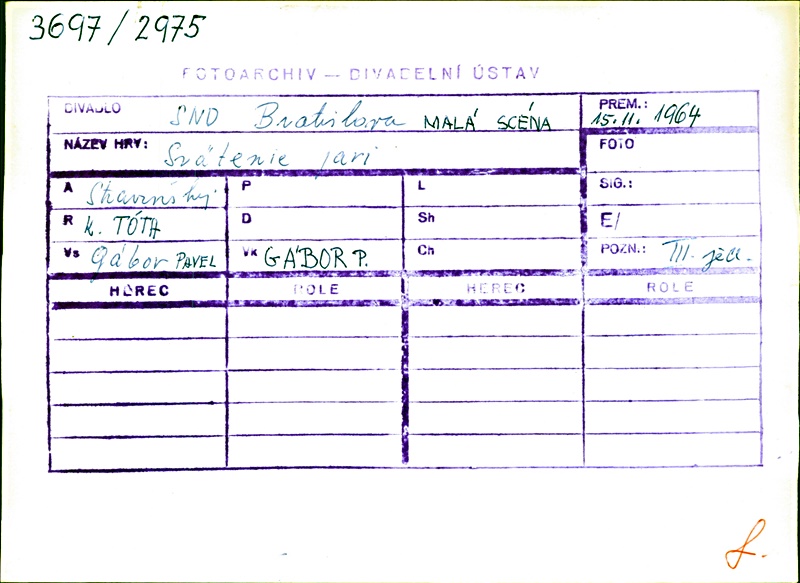 3697/2975
FOTOARCHIV — DIVADELNÍ ÚSTAV
DIVADLO SND Bratislava MALÁ SCÉNA PREM.: 15.II. 1964
NÁZEV HRY: Svätenie jari FOTO
A Stravinskij P L SIG.:
R K. TÓTH D Sh E/
Vs Gábor PAVEL Vk GÁBOR P. Ch POZN.: III. jed.
HEREC ROLE HEREC ROLE